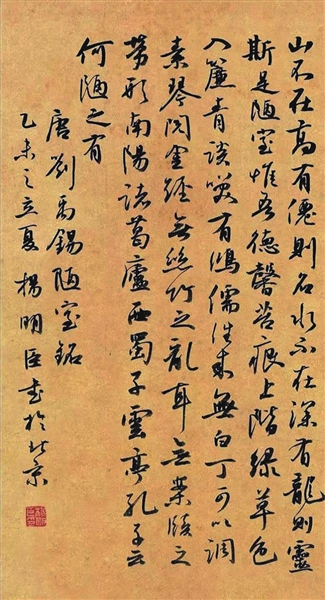 山不在高有僊則名水不在深有龍則靈
斯是陋室惟吾德馨苔痕上階緑草色
入簾青談笑有鴻儒往来無白丁可以調
素琴閲金經無絲竹之亂耳無案牘之
勞形南陽諸葛廬西蜀子雲亭孔子云
何陋之有
唐劉禹錫陋室銘
乙未之立夏楊明臣書於北京